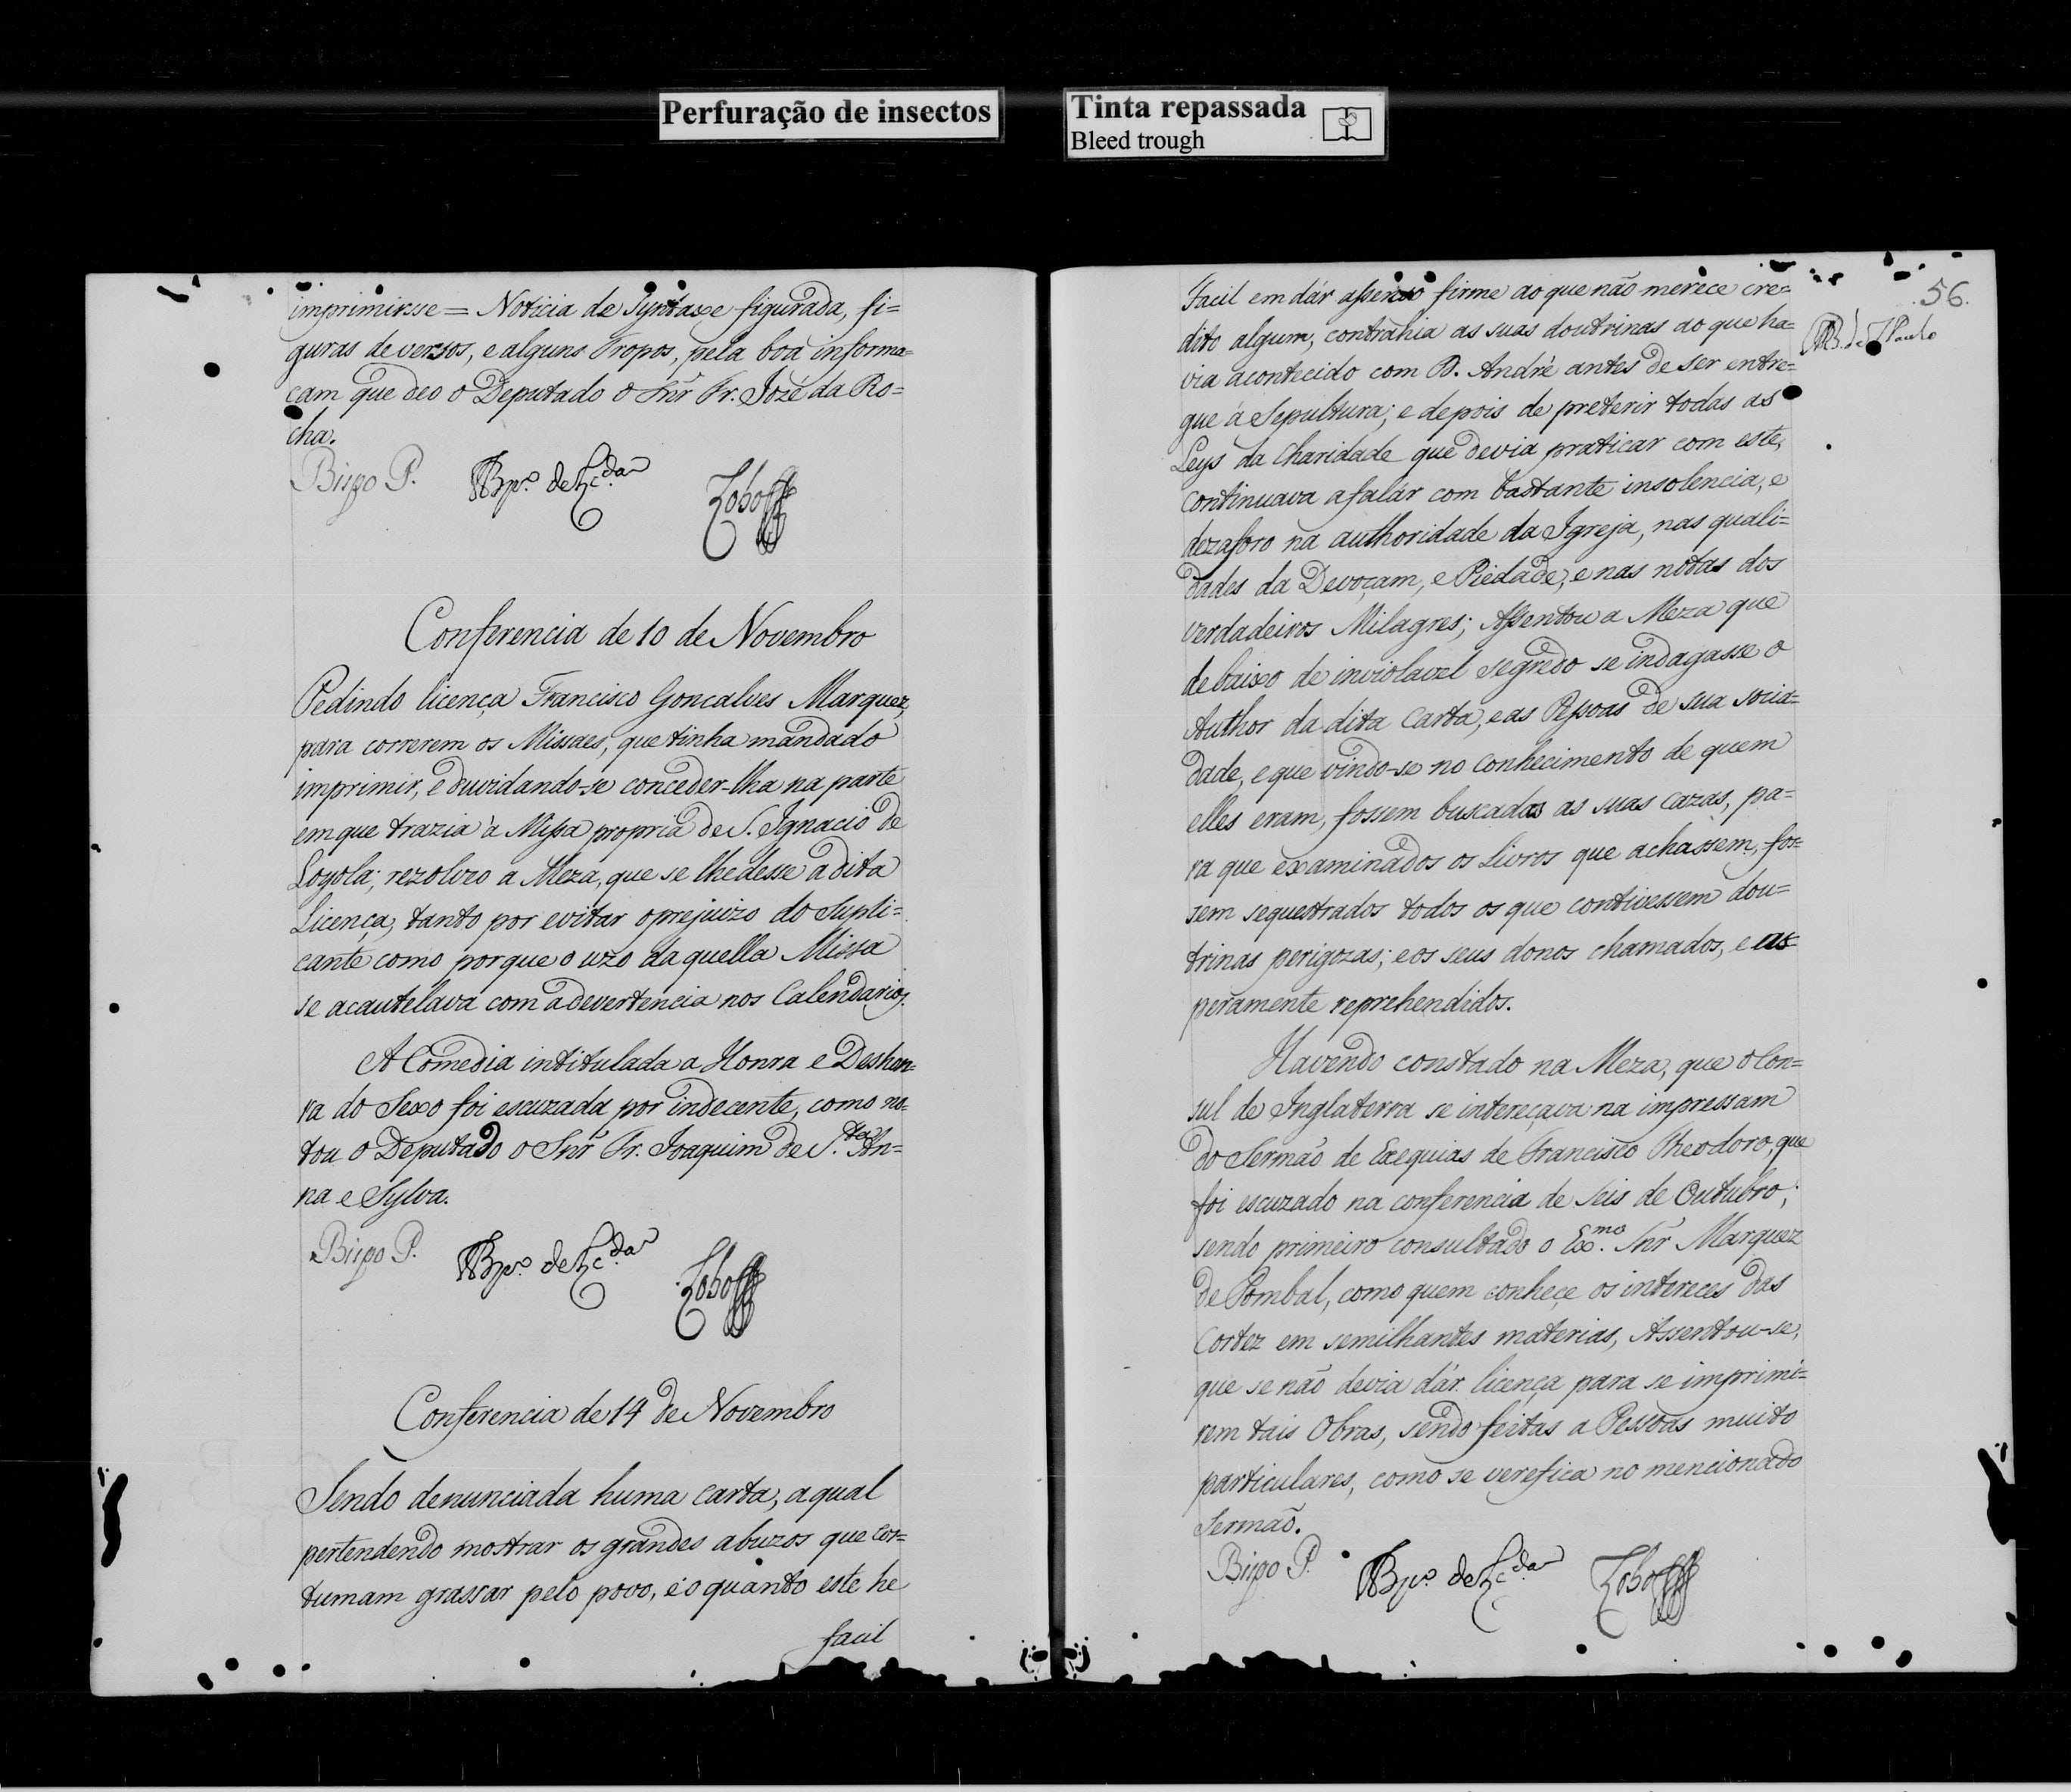 Perfuração de insectos
Tinta repassada
Bleed trough
imprimirsse = Noticia de Syntaxe figurada, fi=
guras de versos, e alguns Tropos, pela boa informa=
cam que deo o Deputado o Snr Fr. Jozé da Ro=
cha.
Bispo P.
Conferencia de 10 de Novembro
Pedindo licença Francisco Goncalves Marquez,
para correrem os Missaes, que tinha mandado
imprimir, e duvidando-se conceder-lha na parte
em que trazia à Missa propria de S. Ignacio de
Loyola; rezolveo a Meza, que se lhe desse a dita
Licença, tanto por evitar o prejuizo do Supli=
cante como porque o uzo da quella Missa
se acautelava com adevertencia nos Calendarios.
A Comedia intitulada a Honra e Deshon=
ra do Sexo foi escuzada por indecente, como no=
tou o Deputado o Snr Fr. Joaquim de S.ta An=
na e Sylva.
Bispo P.
Conferencia de 14 de Novembro
Sendo denunciada huma carta, a qual
pertendendo mostrar os grandes abuzos que cos=
tumam grassar pelo povo, e o quanto este he
facil
56.
Facil em dár assenso firme ao que não merece cre=
dito algum, contrahia as suas doutrinas ao que ha=
via acontecido com D. André antes de ser entre=
gue á Sepultura; e depois de preterir todas as
Leys da Charidade que devia praticar com este,
continuava a falár com bastante insolencia, e
dezaforo na authoridade da Igreja, nas quali=
dades da Devoçam, e Piedade, e nas notas dos
verdadeiros Milagres; Assentou a Meza que
debaixo de inviolavel segredo se indagasse o
Author da dita Carta, e as Pessoas de sua socia=
dade, e que vindo-se no conhecimento de quem
elles eram, fossem buscadas as suas cazas, pa=
ra que examinados os Livros que achassem, fos=
sem sequestrados todos os que contivessem dou=
trinas perigozas; e os seus donos chamados, e as=
peramente reprehendidos.
Havendo constado na Meza, que o Con=
sul de Inglaterra se intereçava na impressam
do Sermão de Exequias de Francisco Theodoro, que
foi escuzado na conferencia de Seis de Outubro;
sendo primeiro consultado o Ex.mo Snr Marquez
de Pombal, como quem conheçe os intereces das
Cortez em semilhantes materias, Assentou-se,
que se não devia dár licença para se imprimi=
rem tais Obras, sendo feitas a Pessoas muito
particulares, como se verefica no mencionado
Sermão.
Bispo P.